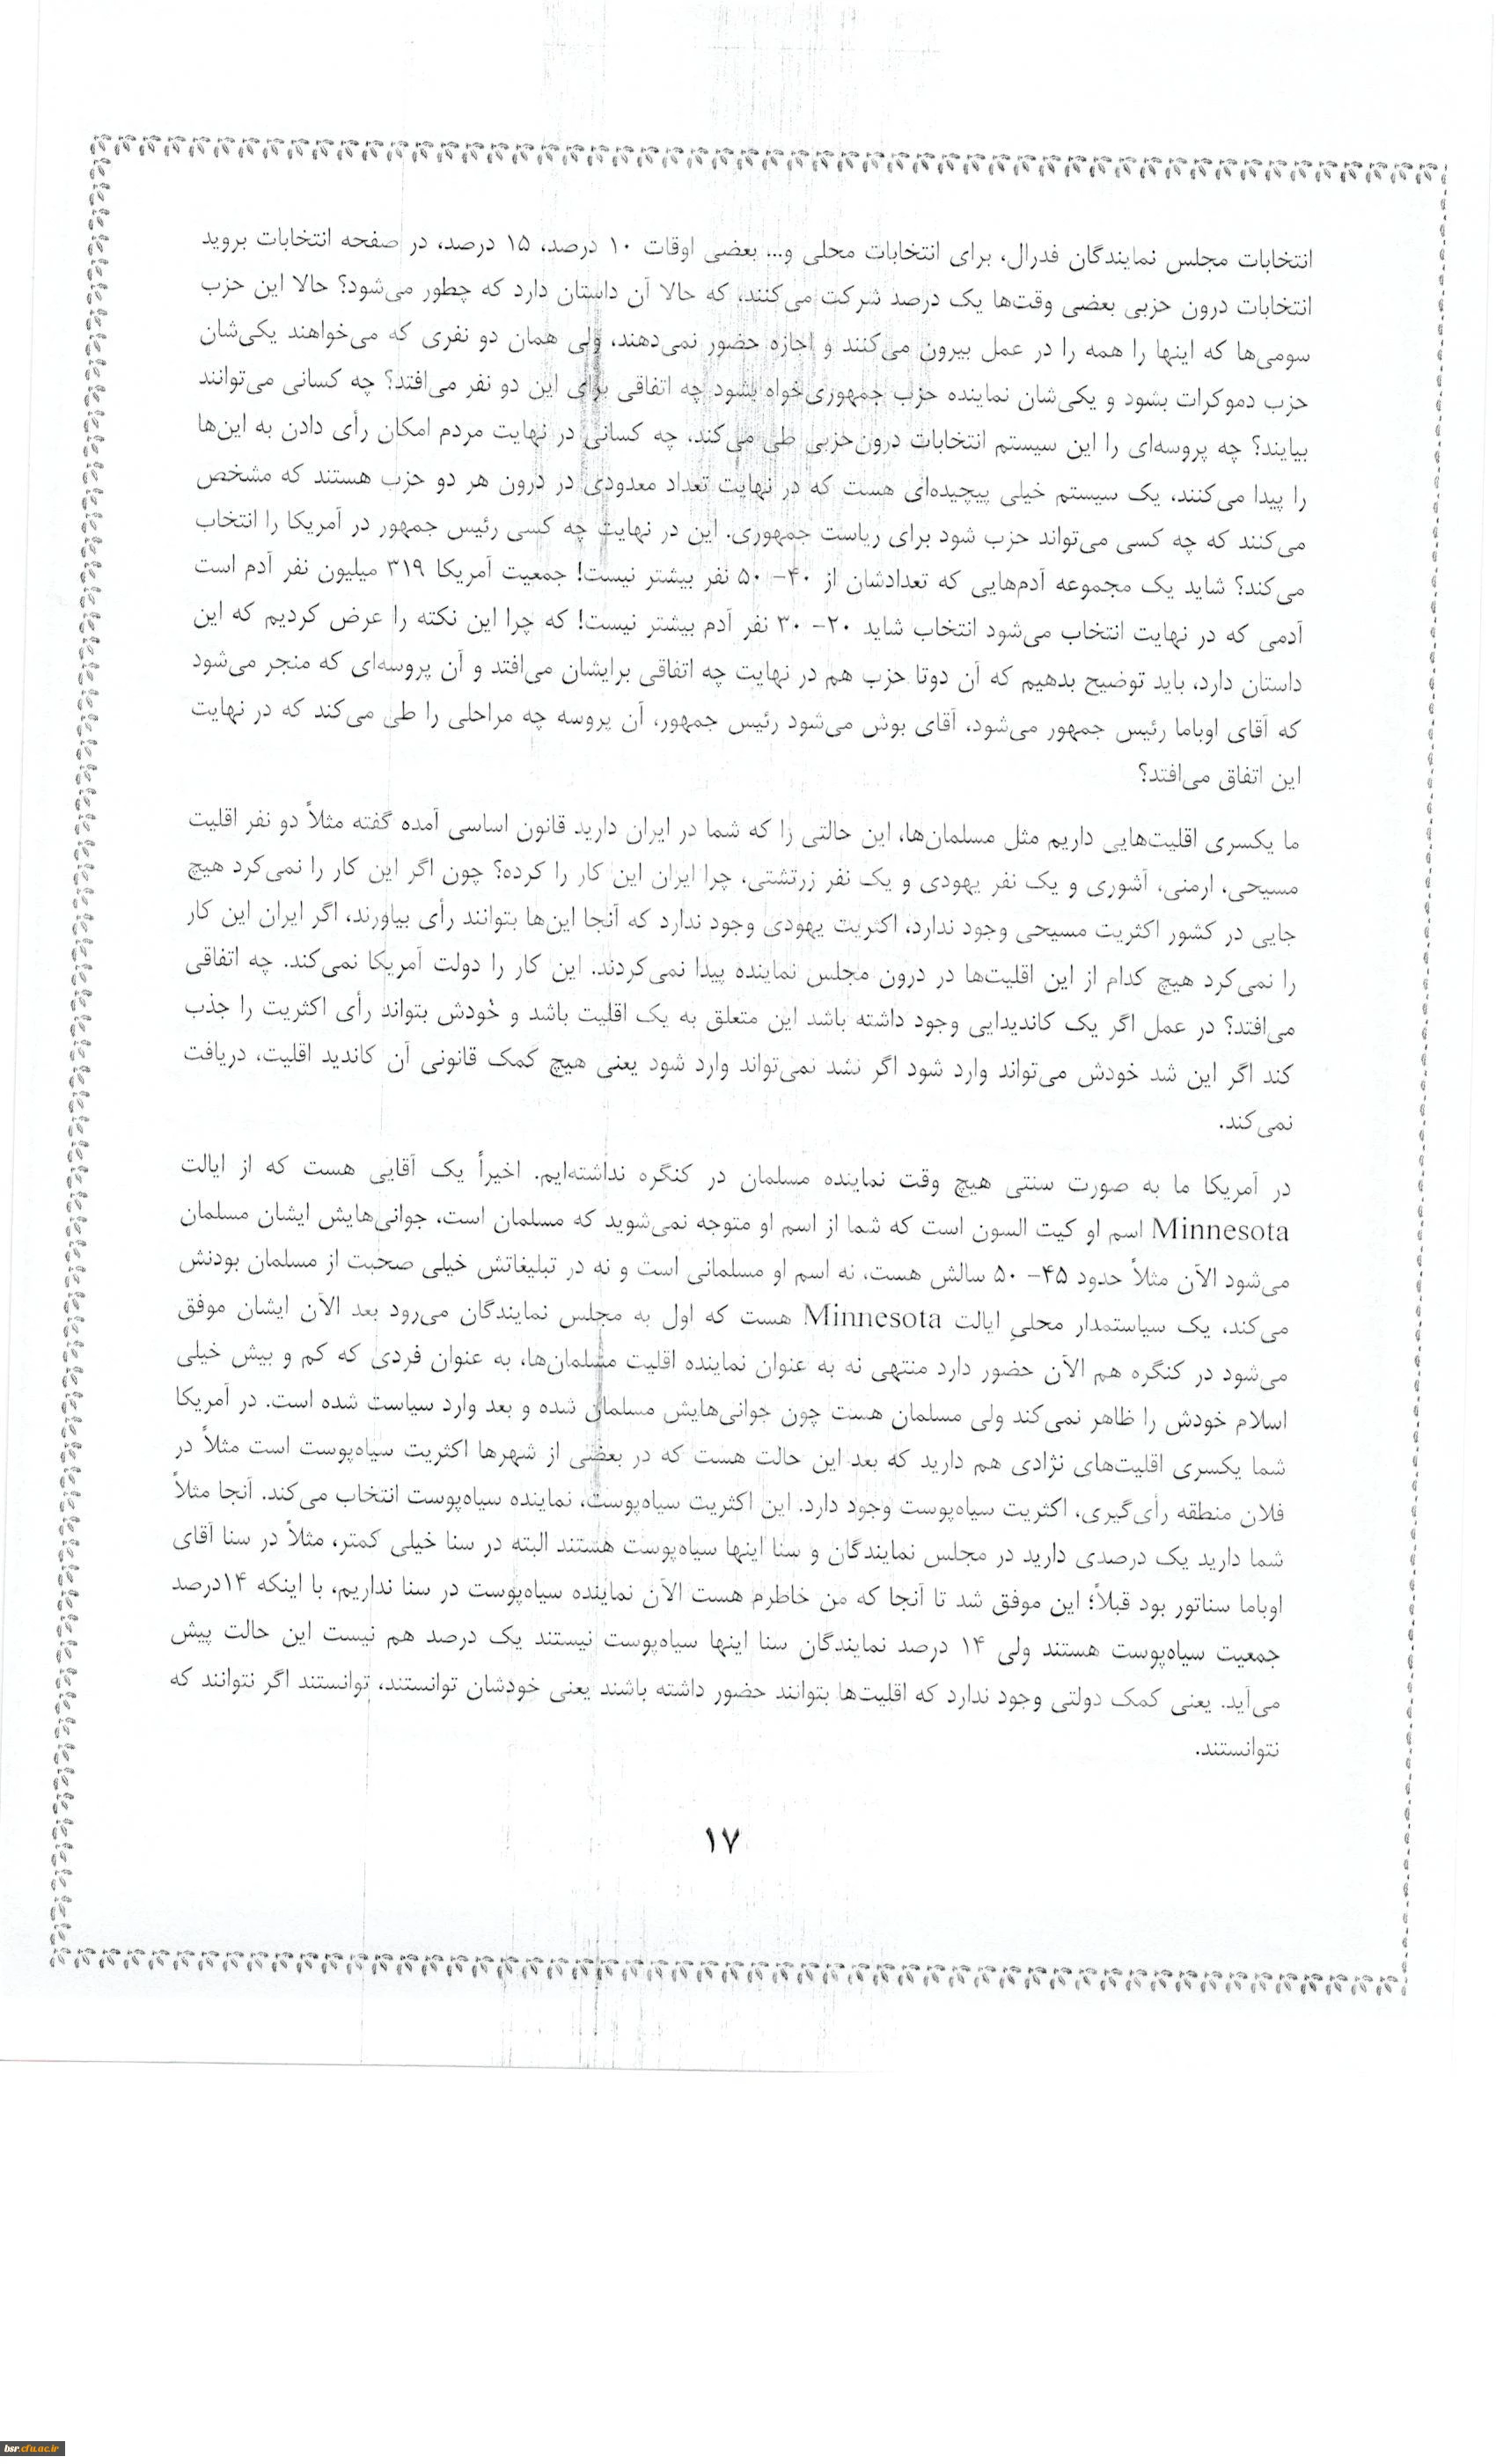 انتخابات مجلس نمایندگان فدرال، برای انتخابات محلی و... بعضی اوقات ۱۰ درصد، ۱۵ درصد، در صفحه انتخابات بروید
انتخابات درون حزبی بعضی وقت‌ها یک درصد شرکت می‌کنند، که حالا آن داستان دارد که چطور می‌شود؟ حالا این حزب
سومی‌ها که اینها را همه را در عمل بیرون می‌کنند و اجازه حضور نمی‌دهند، ولی همان دو نفری که می‌خواهند یکی‌شان
حزب دموکرات بشود و یکی‌شان نماینده حزب جمهوری‌خواه بشود چه اتفاقی برای این دو نفر می‌افتد؟ چه کسانی می‌توانند
بیایند؟ چه پروسه‌ای را این سیستم انتخابات درون‌حزبی طی می‌کند، چه کسانی در نهایت مردم امکان رأی دادن به این‌ها
را پیدا می‌کنند، یک سیستم خیلی پیچیده‌ای هست که در نهایت تعداد معدودی در درون هر دو حزب هستند که مشخص
می‌کنند که چه کسی می‌تواند حزب شود برای ریاست جمهوری. این در نهایت چه کسی رئیس جمهور در آمریکا را انتخاب
می‌کند؟ شاید یک مجموعه آدم‌هایی که تعدادشان از ۴۰- ۵۰ نفر بیشتر نیست! جمعیت آمریکا ۳۱۹ میلیون نفر آدم است
آدمی که در نهایت انتخاب می‌شود انتخاب شاید ۲۰- ۳۰ نفر آدم بیشتر نیست! که چرا این نکته را عرض کردیم که این
داستان دارد، باید توضیح بدهیم که آن دوتا حزب هم در نهایت چه اتفاقی برایشان می‌افتد و آن پروسه‌ای که منجر می‌شود
که آقای اوباما رئیس جمهور می‌شود، آقای بوش می‌شود رئیس جمهور، آن پروسه چه مراحلی را طی می‌کند که در نهایت
این اتفاق می‌افتد؟
ما یکسری اقلیت‌هایی داریم مثل مسلمان‌ها، این حالتی را که شما در ایران دارید قانون اساسی آمده گفته مثلاً دو نفر اقلیت
مسیحی، ارمنی، آشوری و یک نفر یهودی و یک نفر زرتشتی، چرا ایران این کار را کرده؟ چون اگر این کار را نمی‌کرد هیچ
جایی در کشور اکثریت مسیحی وجود ندارد، اکثریت یهودی وجود ندارد که آنجا این‌ها بتوانند رأی بیاورند، اگر ایران این کار
را نمی‌کرد هیچ کدام از این اقلیت‌ها در درون مجلس نماینده پیدا نمی‌کردند. این کار را دولت آمریکا نمی‌کند. چه اتفاقی
می‌افتد؟ در عمل اگر یک کاندیدایی وجود داشته باشد این متعلق به یک اقلیت باشد و خودش بتواند رأی اکثریت را جذب
کند اگر این شد خودش می‌تواند وارد شود اگر نشد نمی‌تواند وارد شود یعنی هیچ کمک قانونی آن کاندید اقلیت، دریافت
نمی‌کند.
در آمریکا ما به صورت سنتی هیچ وقت نماینده مسلمان در کنگره نداشته‌ایم. اخیراً یک آقایی هست که از ایالت
Minnesota اسم او کیت السون است که شما از اسم او متوجه نمی‌شوید که مسلمان است، جوانی‌هایش ایشان مسلمان
می‌شود الآن مثلاً حدود ۴۵- ۵۰ سالش هست، نه اسم او مسلمانی است و نه در تبلیغاتش خیلی صحبت از مسلمان بودنش
می‌کند، یک سیاستمدار محلیِ ایالت Minnesota هست که اول به مجلس نمایندگان می‌رود بعد الآن ایشان موفق
می‌شود در کنگره هم الآن حضور دارد منتهی نه به عنوان نماینده اقلیت مسلمان‌ها، به عنوان فردی که کم و بیش خیلی
اسلام خودش را ظاهر نمی‌کند ولی مسلمان هست چون جوانی‌هایش مسلمان شده و بعد وارد سیاست شده است. در آمریکا
شما یکسری اقلیت‌های نژادی هم دارید که بعد این حالت هست که در بعضی از شهرها اکثریت سیاه‌پوست است مثلاً در
فلان منطقه رأی‌گیری، اکثریت سیاه‌پوست وجود دارد. این اکثریت سیاه‌پوست، نماینده سیاه‌پوست انتخاب می‌کند. آنجا مثلاً
شما دارید یک درصدی دارید در مجلس نمایندگان و سنا اینها سیاه‌پوست هستند البته در سنا خیلی کمتر، مثلاً در سنا آقای
اوباما سناتور بود قبلاً؛ این موفق شد تا آنجا که من خاطرم هست الآن نماینده سیاه‌پوست در سنا نداریم، با اینکه ۱۴درصد
جمعیت سیاه‌پوست هستند ولی ۱۴ درصد نمایندگان سنا اینها سیاه‌پوست نیستند یک درصد هم نیست این حالت پیش
می‌آید. یعنی کمک دولتی وجود ندارد که اقلیت‌ها بتوانند حضور داشته باشند یعنی خودشان توانستند، توانستند اگر نتوانند که
نتوانستند.
۱۷
bsr.cfu.ac.ir